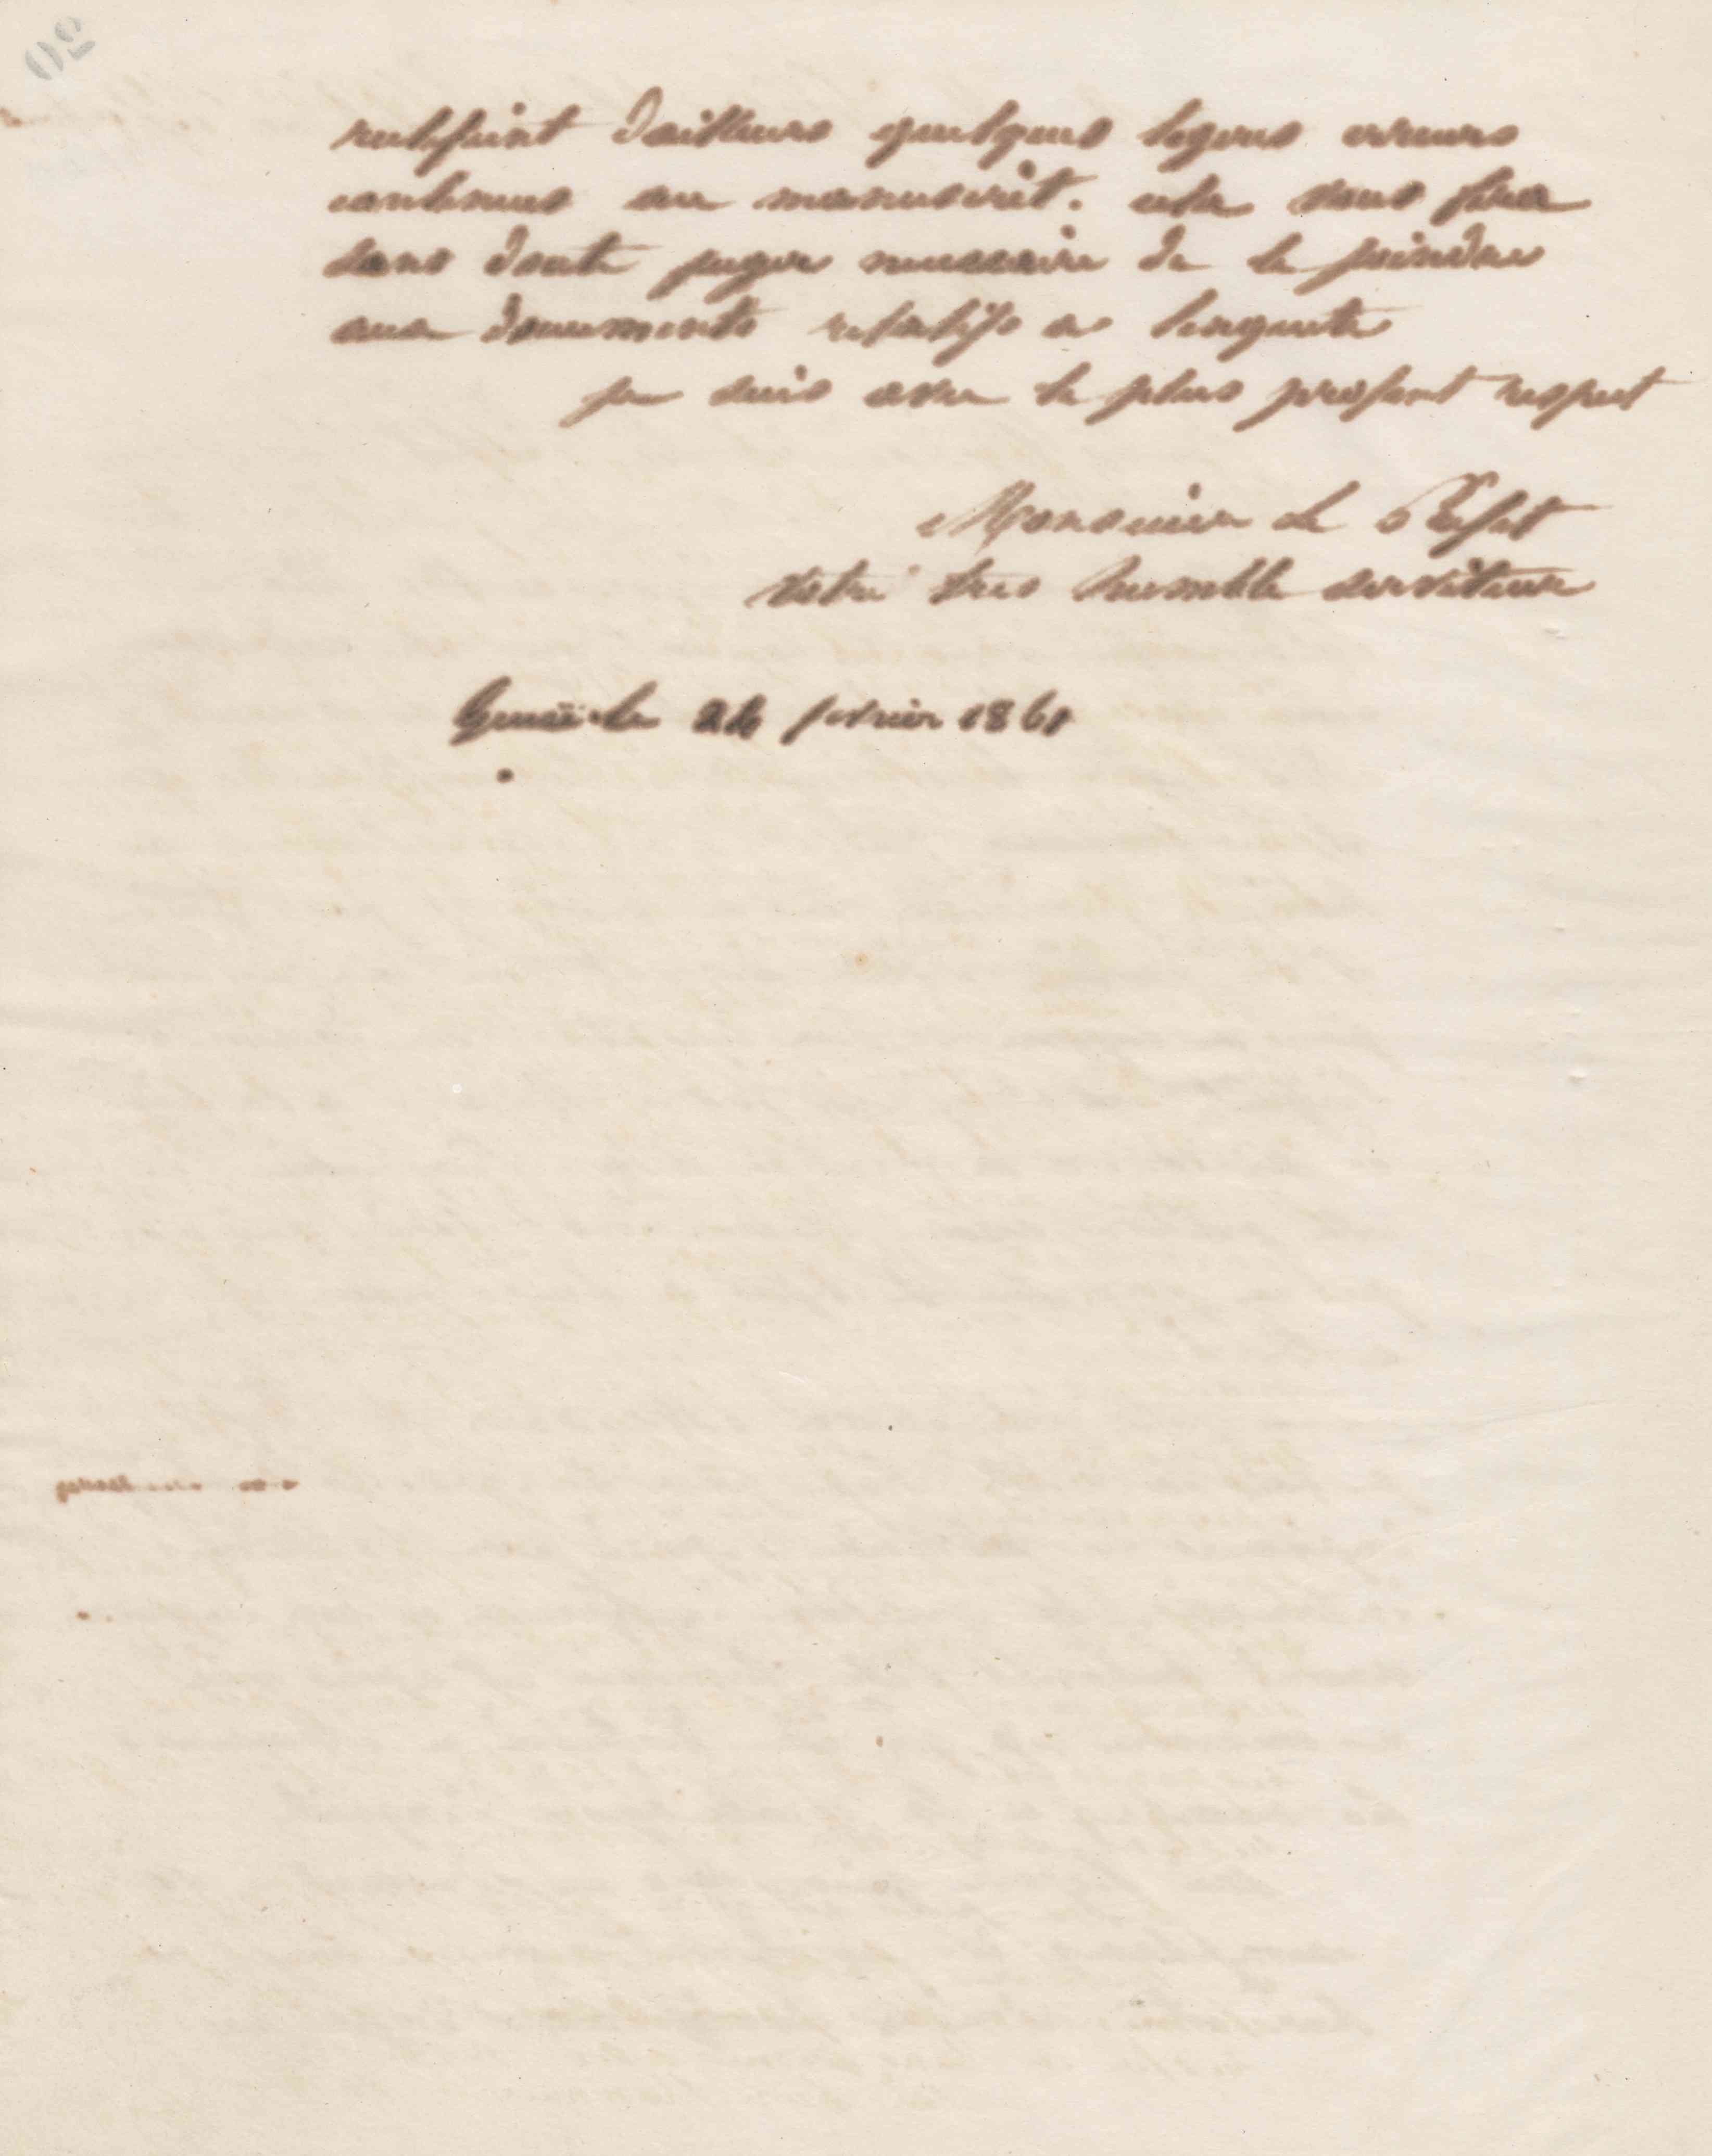 rectifiint dailleurs quelques legeres erreurs
contenues au manuscrit. cela vous fera
sans doute juger necessaire de le joindre
aux documents relatifs a lenquete
je suis avec le plus profont respect
Monsieur le Préfet
votre tres humble serviteur
le 24 fevrier 1861